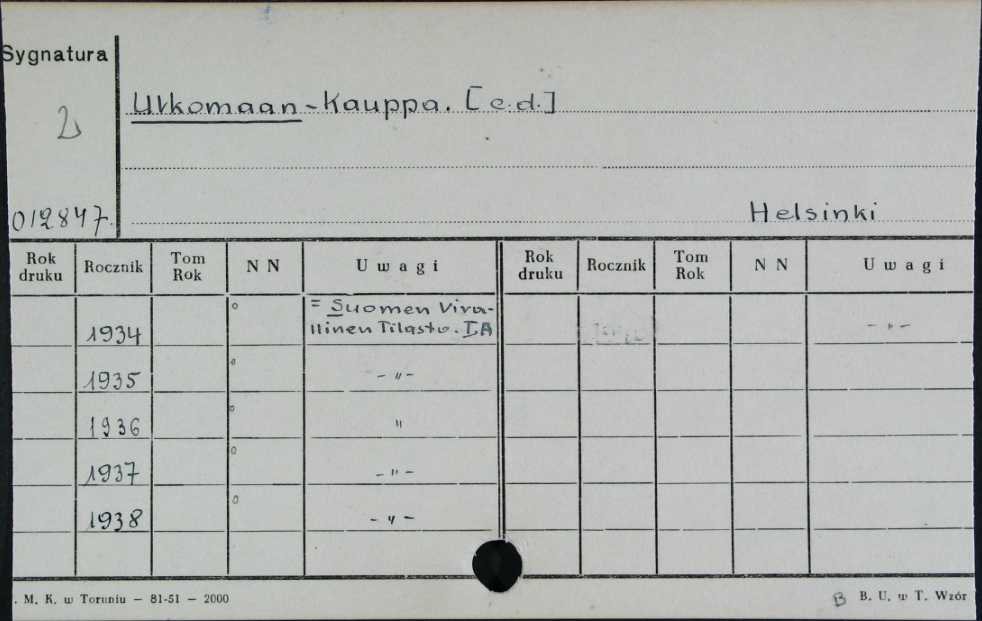 Sygnatura
Ulkomaan-Kauppa. [c.d.]
012847
Helsinki
Rok druku Rocznik Tom Rok N N Uwagi Rok druku Rocznik Tom Rok N N Uwagi
= Suomen Viral-
1934 llinen Tilasto. I A - " -
1935 - " -
1936 "
1937 - " -
1938 - " -
. M. K. w Toruniu — 81-51 — 2000
B B. U. w T. Wzór